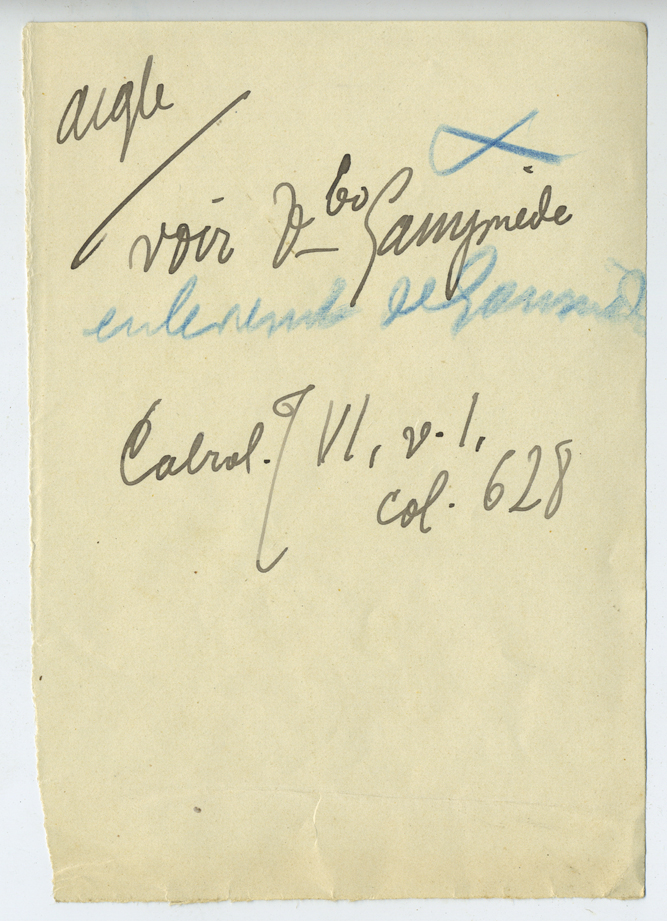 aigle
voir Vbo Ganymède
enlèvement de Ganimède
Cabrol. T VI, v. 1,
col. 628